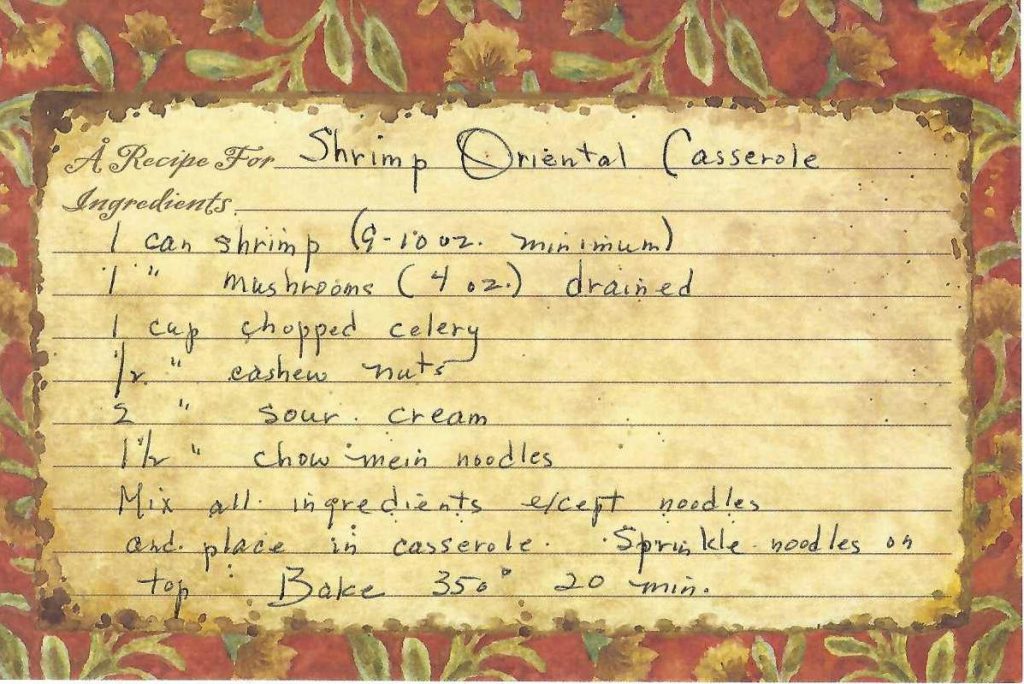 A Recipe For Shrimp Oriental Casserole
Ingredients
1 can shrimp (9-10 oz. minimum)
1 " mushrooms (4 oz.) drained
1 cup chopped celery
1/2 " cashew nuts
2 " sour cream
1 1/2 " chow mein noodles
Mix all ingredients except noodles
and place in casserole. Sprinkle noodles on
top. Bake 350° 20 min.